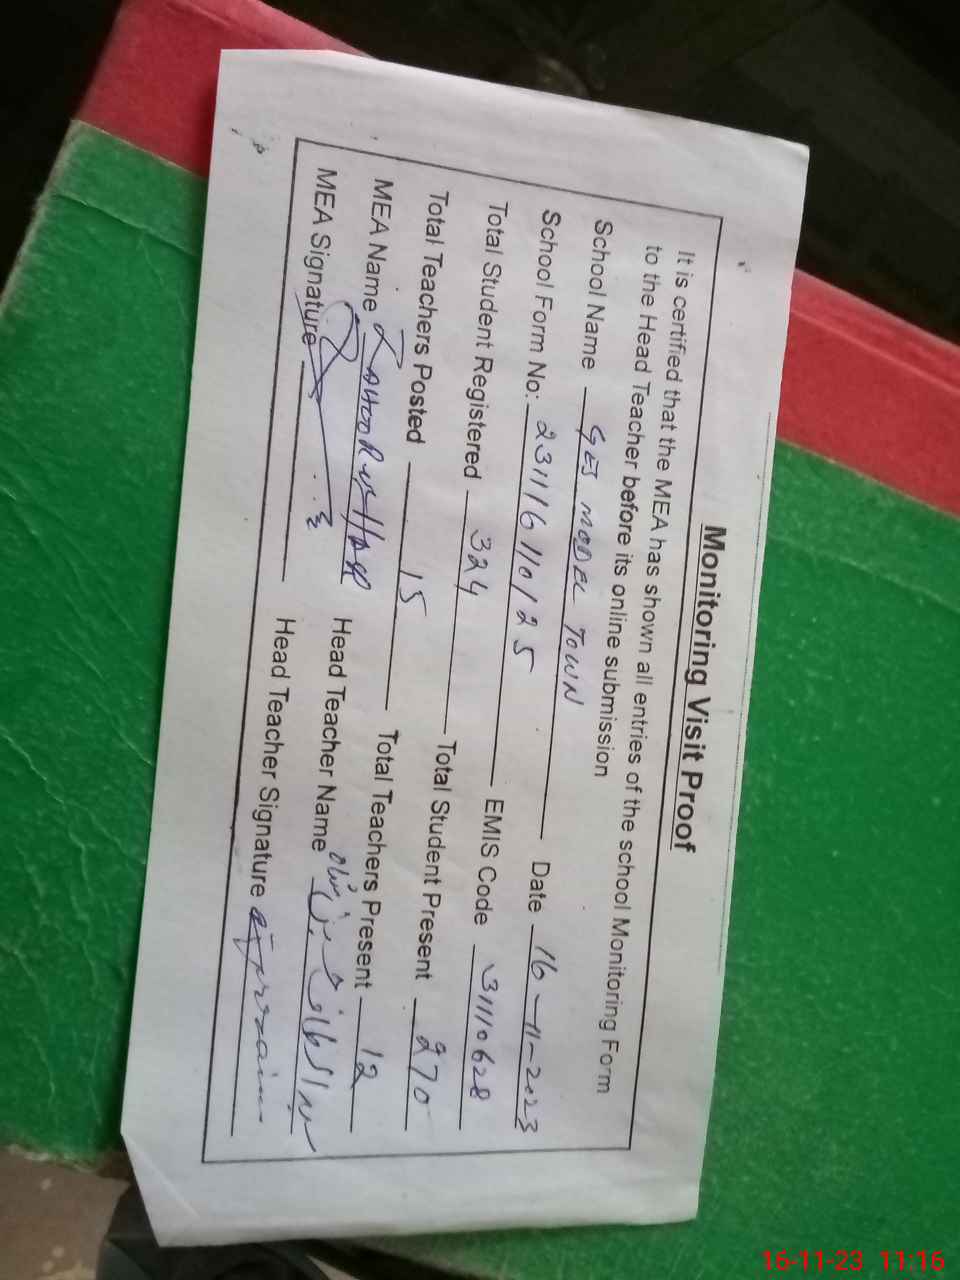 Monitoring Visit Proof
It is certified that the MEA has shown all entries of the school Monitoring Form
to the Head Teacher before its online submission
School Name GES MODEL TOWN
School Form No: 231116110125 Date 16-11-2023
Total Student Registered 324 EMIS Code 31110628
Total Teachers Posted 15 Total Student Present 270
MEA Name Total Teachers Present 12
MEA Signature Head Teacher Name
Head Teacher Signature
16-11-23 11:16